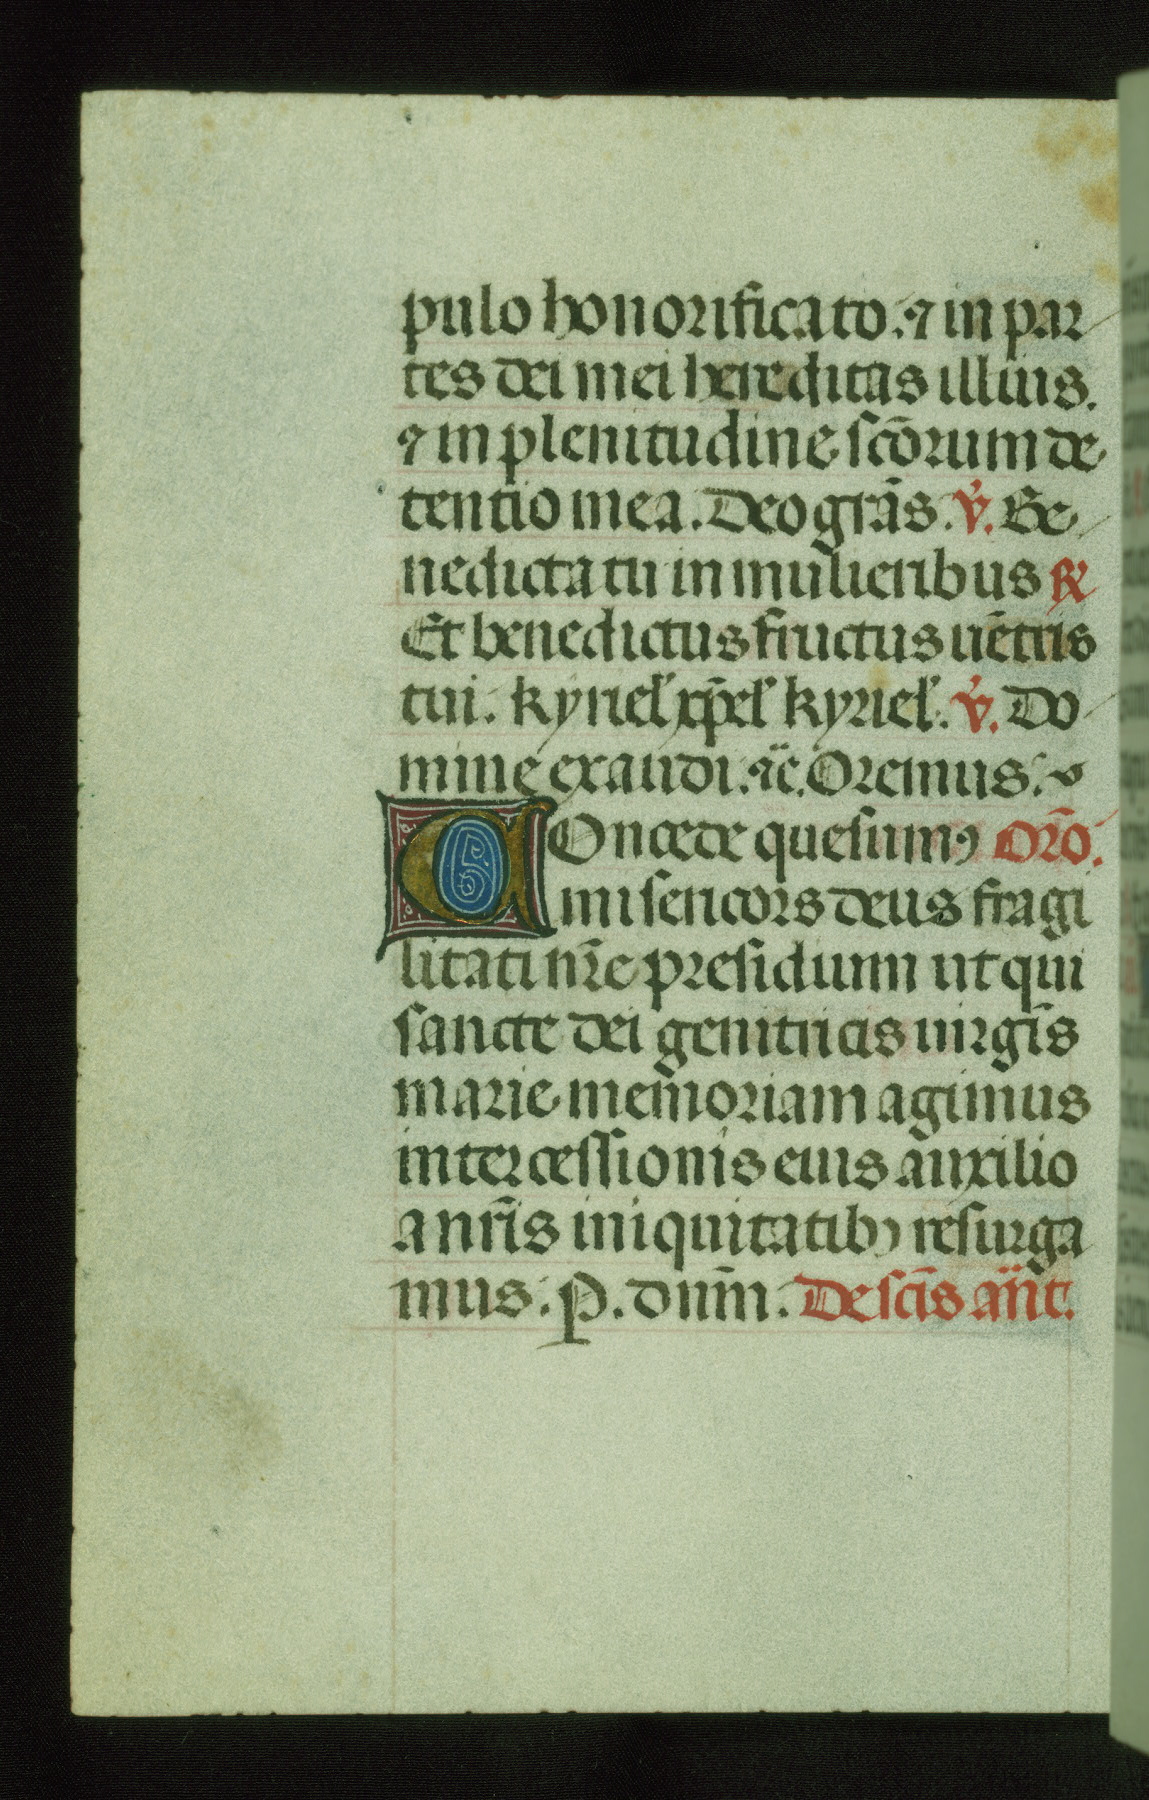 pulo honorificato. ⁊ in par
tes dei mei hereditas illius.
⁊ in plenitudine sc̄orum de
tentio mea. Deo gr̄as. V̄. Be
nedicta tu in mulieribus R̄
Et benedictus fructus uētris
tui. kyriel' xp̄el' kyriel'. V̄. Do
mine exaudi. ⁊c̄. Oremus.
Concede quesumꝰ Orō.
misericors deus fragi
litati nr̄e presidium ut qui
sancte dei genitricis uirgīs
marie memoriam agimus
intercessionis eius auxilio
a nr̄is iniquitatibꝫ resurga
mus. P. dn̄m. De sc̄is an̄t.